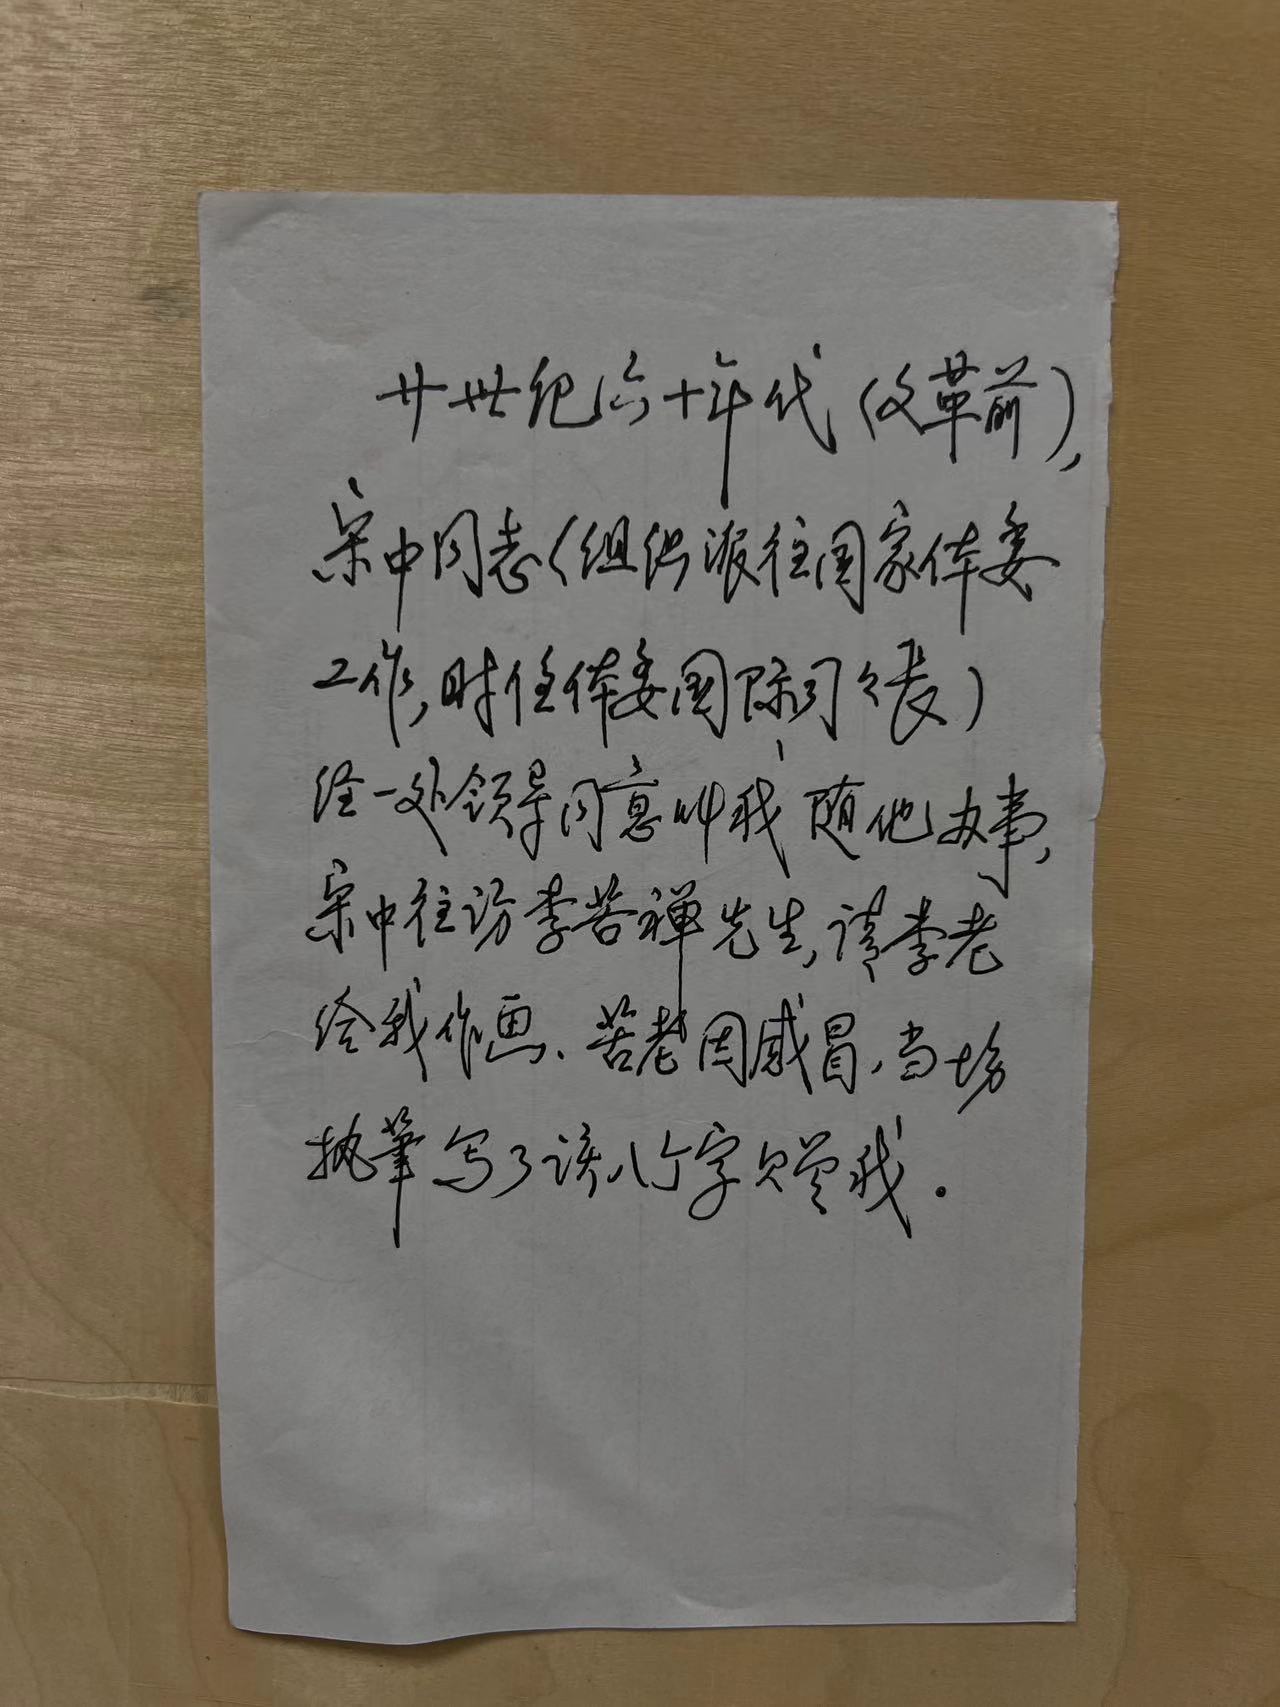 廿世纪六十年代(文革前),
宋中同志(组织派往国家体委
工作,时任体委国际司々長)
经一处领导同意叫我随他办事,
宋中往访李苦禅先生,请李老
给我作画、苦老因感冒,当场
执筆写了该八个字赠我.